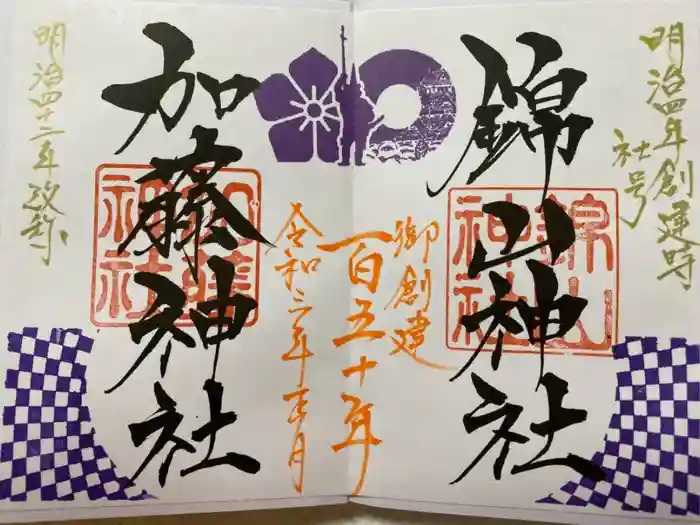 明治四年創建時
社号
錦山神社
錦山
神社
御創建
一百五十年
令和三年正月
加藤神社
加藤
神社
明治四十二年改称